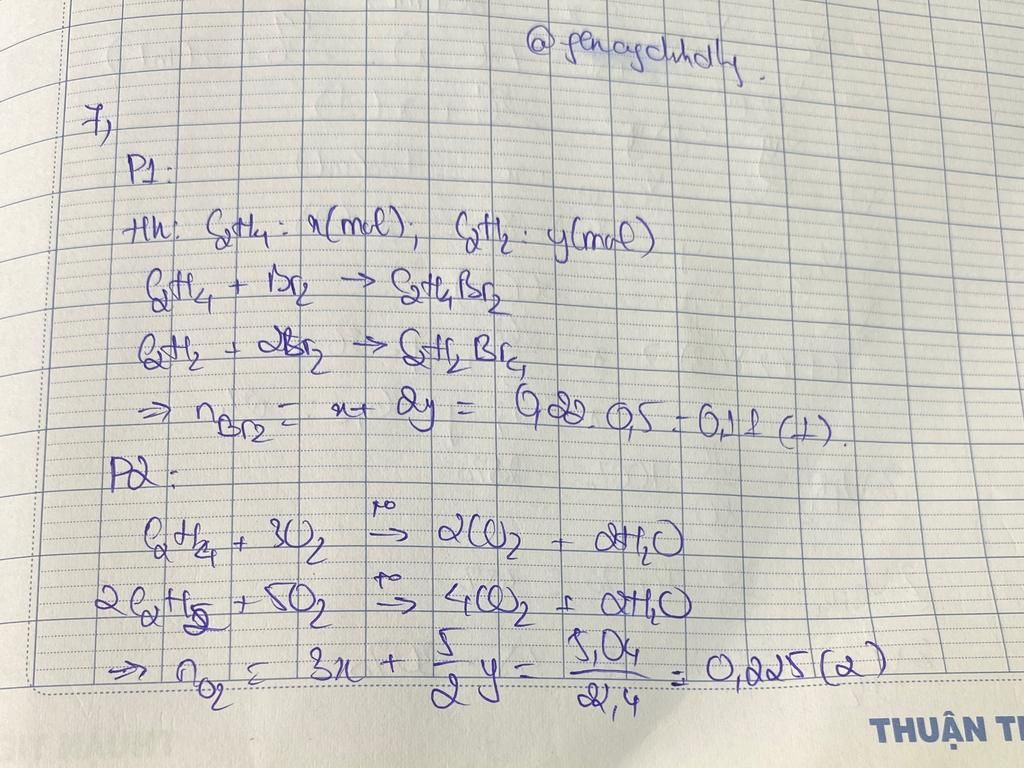 7,
P1:
Hh: C2H4: x(mol); C2H2: y(mol)
C2H4 + Br2 → C2H4Br2
C2H2 + 2Br2 → C2H2Br4
⇒ nBr2 = x + 2y = 0,22.0,5 = 0,11 (1).
P2:
C2H4 + 3O2 →(t°) 2CO2 + 2H2O
2C2H2 + 5O2 →(t°) 4CO2 + 2H2O
⇒ nO2 = 3x + 5/2 y = 5,04/22,4 = 0,225 (2)
THUẬN TI